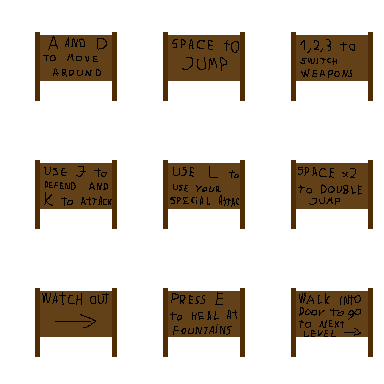 A AND D
TO MOVE
AROUND
SPACE to
JUMP
1,2,3 to
SWITCH
WEAPONS
USE J to
DEFEND AND
K to ATTACK
USE L to
USE YOUR
SPECIAL ATTAC
SPACE x2
to DOUBLE
JUMP
WATCH OUT
PRESS E
to HEAL At
FOUNTAINS
WALK INTO
Door to go
to NEXT
LEVEL